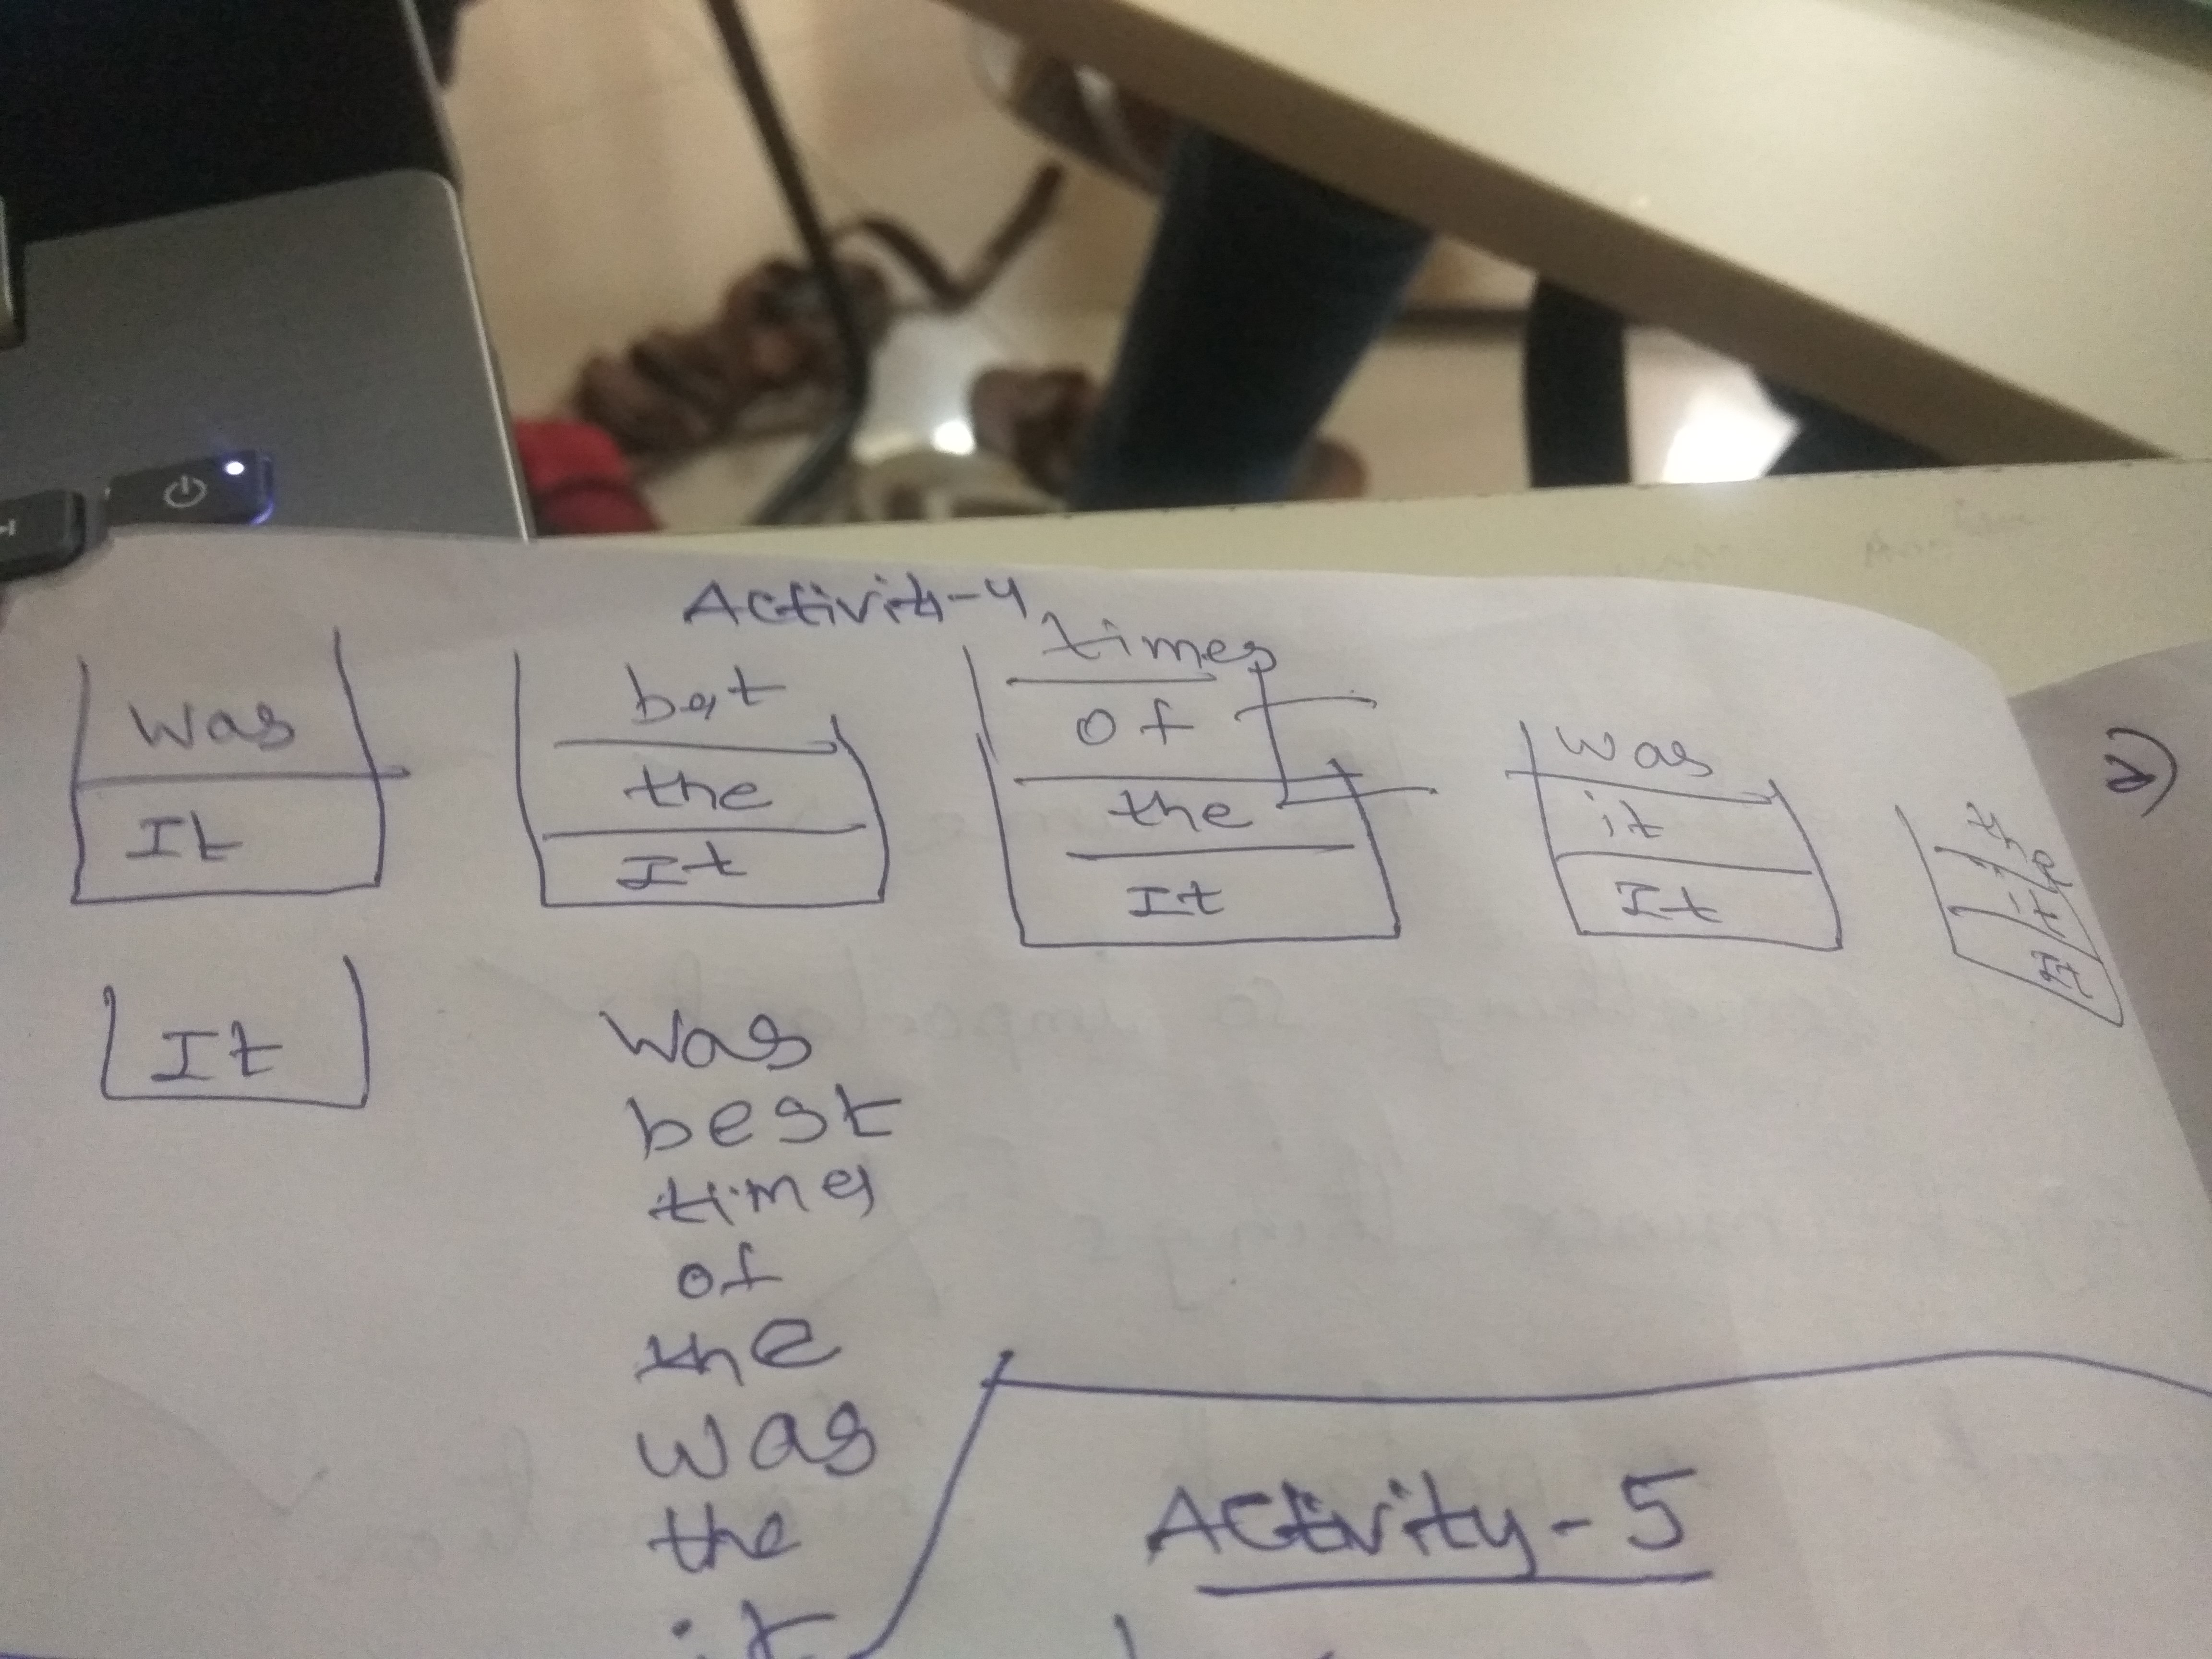 Activity-4
was
It
best
the
It
times
of
the
It
was
it
It
the
it
It
It
was
best
times
of
the
was
the
it
Activity-5